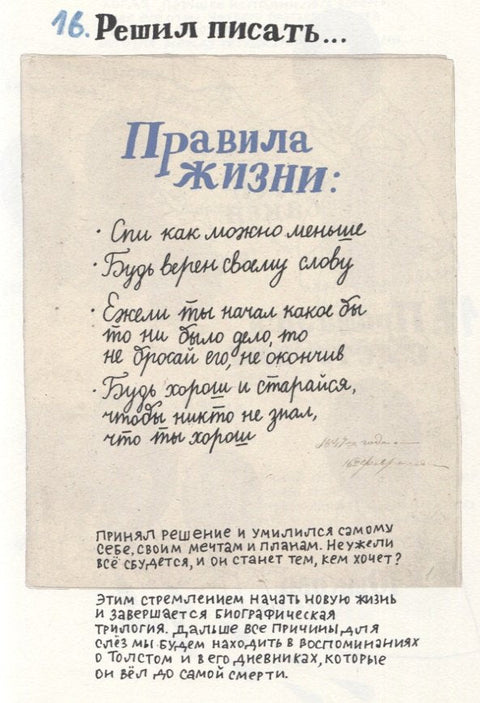 16. Решил писать...
Правила
жизни:
· Спи как можно меньше
· Будь верен своему слову
· Ежели ты начал какое бы
то ни было дело, то
не бросай его, не окончив
· Будь хорош и старайся,
чтобы никто не знал,
что ты хорош
Принял решение и умилился самому
себе, своим мечтам и планам. Неужели
всё сбудется, и он станет тем, кем хочет?
Этим стремлением начать новую жизнь
и завершается биографическая
трилогия. Дальше все причины для
слёз мы будем находить в воспоминаниях
о Толстом и в его дневниках, которые
он вёл до самой смерти.